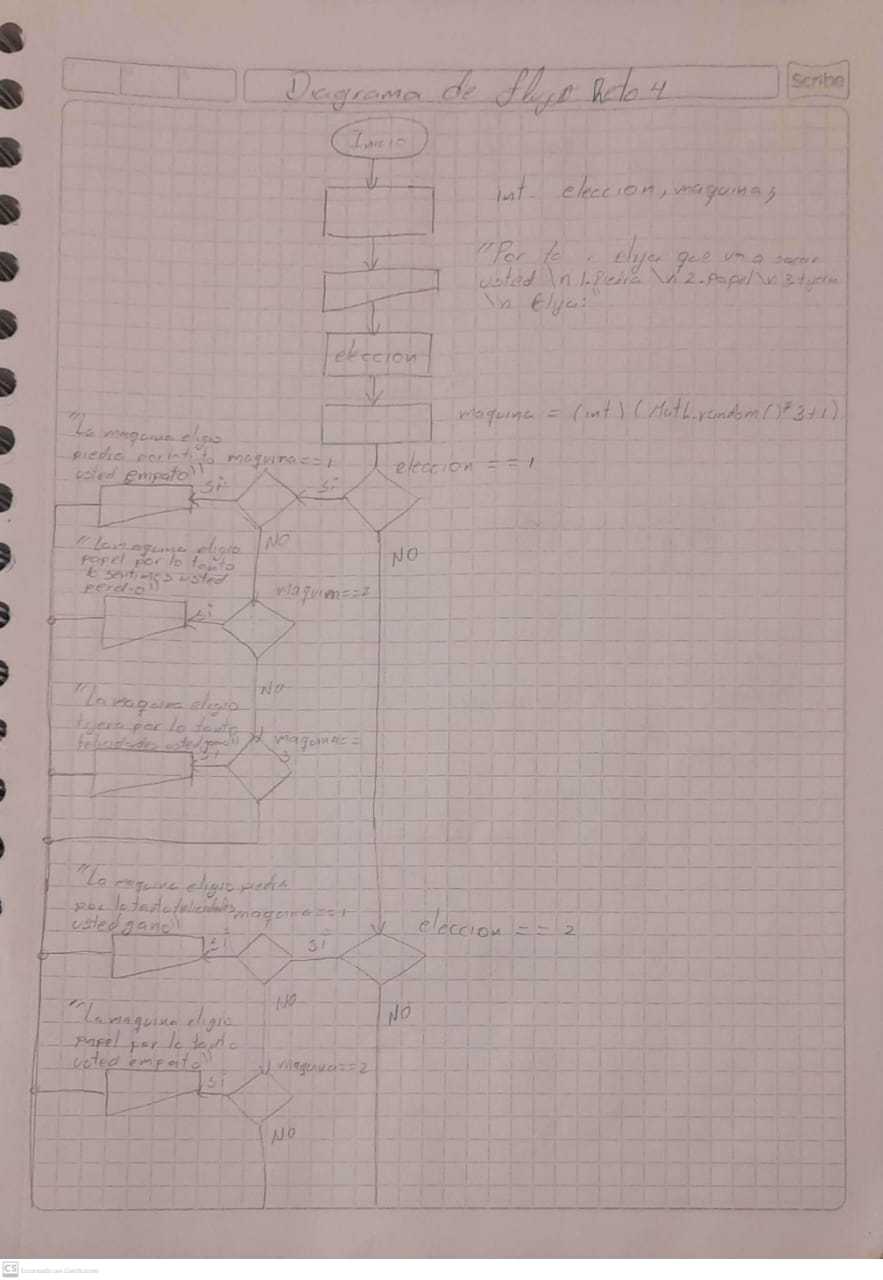 Diagrama de flujo Reto 4
Scribe
Inicio
int eleccion, maquina;
"Por fa , elija que va a sacar
usted \n 1.Piedra \n 2.Papel \n 3.tijera
\n Elija:"
eleccion
maquina = (int) (Math.random()*3+1)
"La maquina eligio
piedra por lo tanto
usted empato"
maquina==1
eleccion == 1
si
si
NO
NO
"La maquina eligio
papel por lo tanto
lo sentimos usted
perdio"
maquina==2
si
NO
"La maquina eligio
tijera por lo tanto
felicidades usted gano"
maquina==
3
si
"La maquina eligio piedra
por lo tanto felicidades
usted gano"
maquina==1
eleccion == 2
si
si
NO
NO
"La maquina eligio
papel por lo tanto
usted empato"
maquina==2
si
NO
CS Escaneado con CamScanner